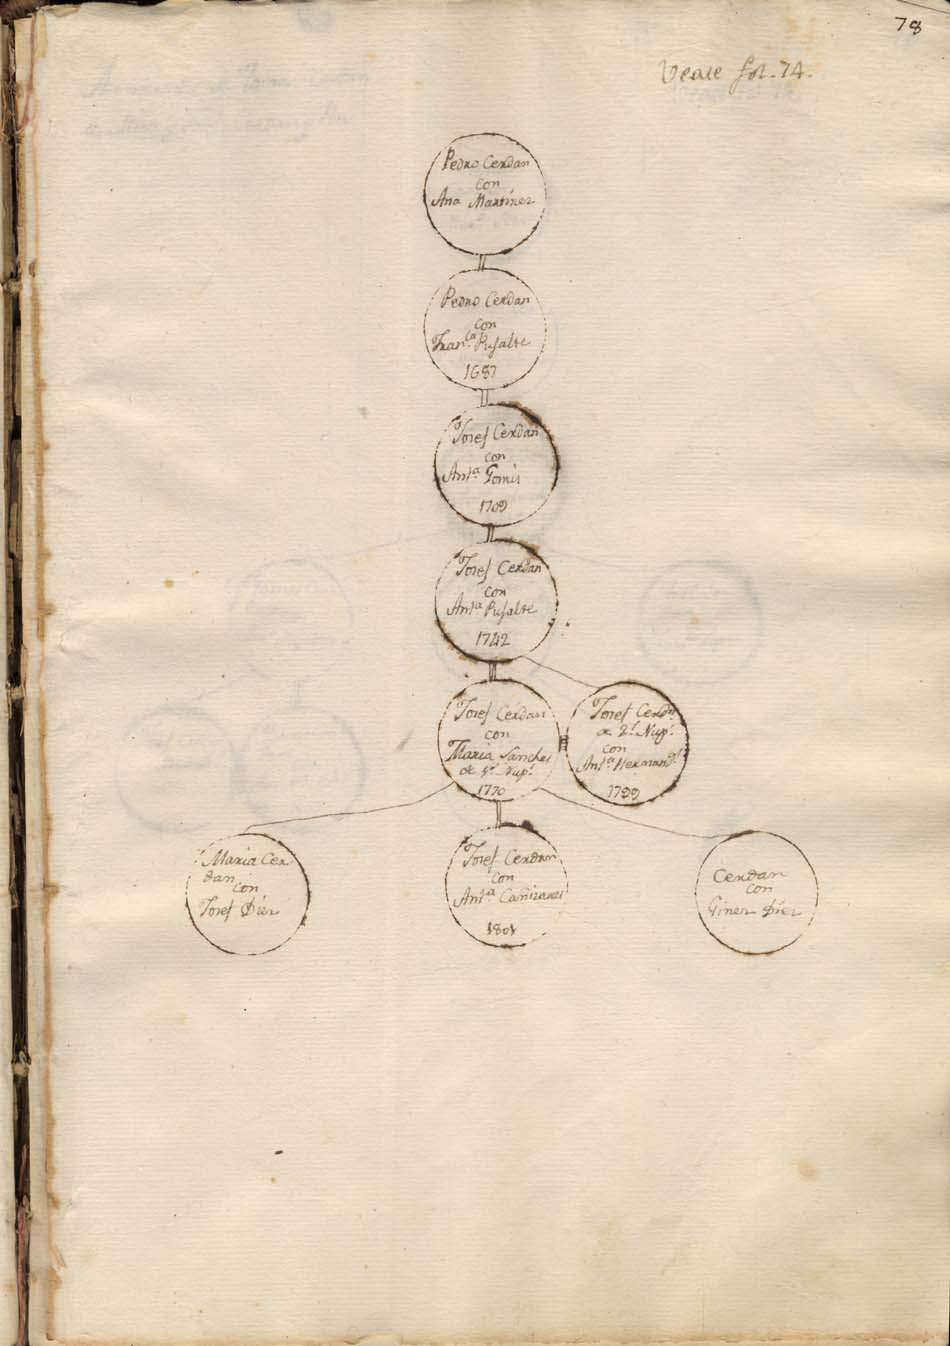 78
Vease fol. 74.
Pedro Cerdan
con
Ana Martinez
Pedro Cerdan
con
Fran.ca Pujalte
1687
Josef Cerdan
con
Ant.a Gomis
1709
Josef Cerdan
con
Ant.a Pujalte
1742
Josef Cerdan
con
Maria Sanches
de 1.s Nup.s
1770
Josef Cerdn
de 2.s Nup.s
con
Ant.a Hernand.s
1799
Maria Cer
dan
con
Josef Díez
Josef Cerdan
con
Ant.a Cañizares
1801
Cerdan
con
Giner Díez